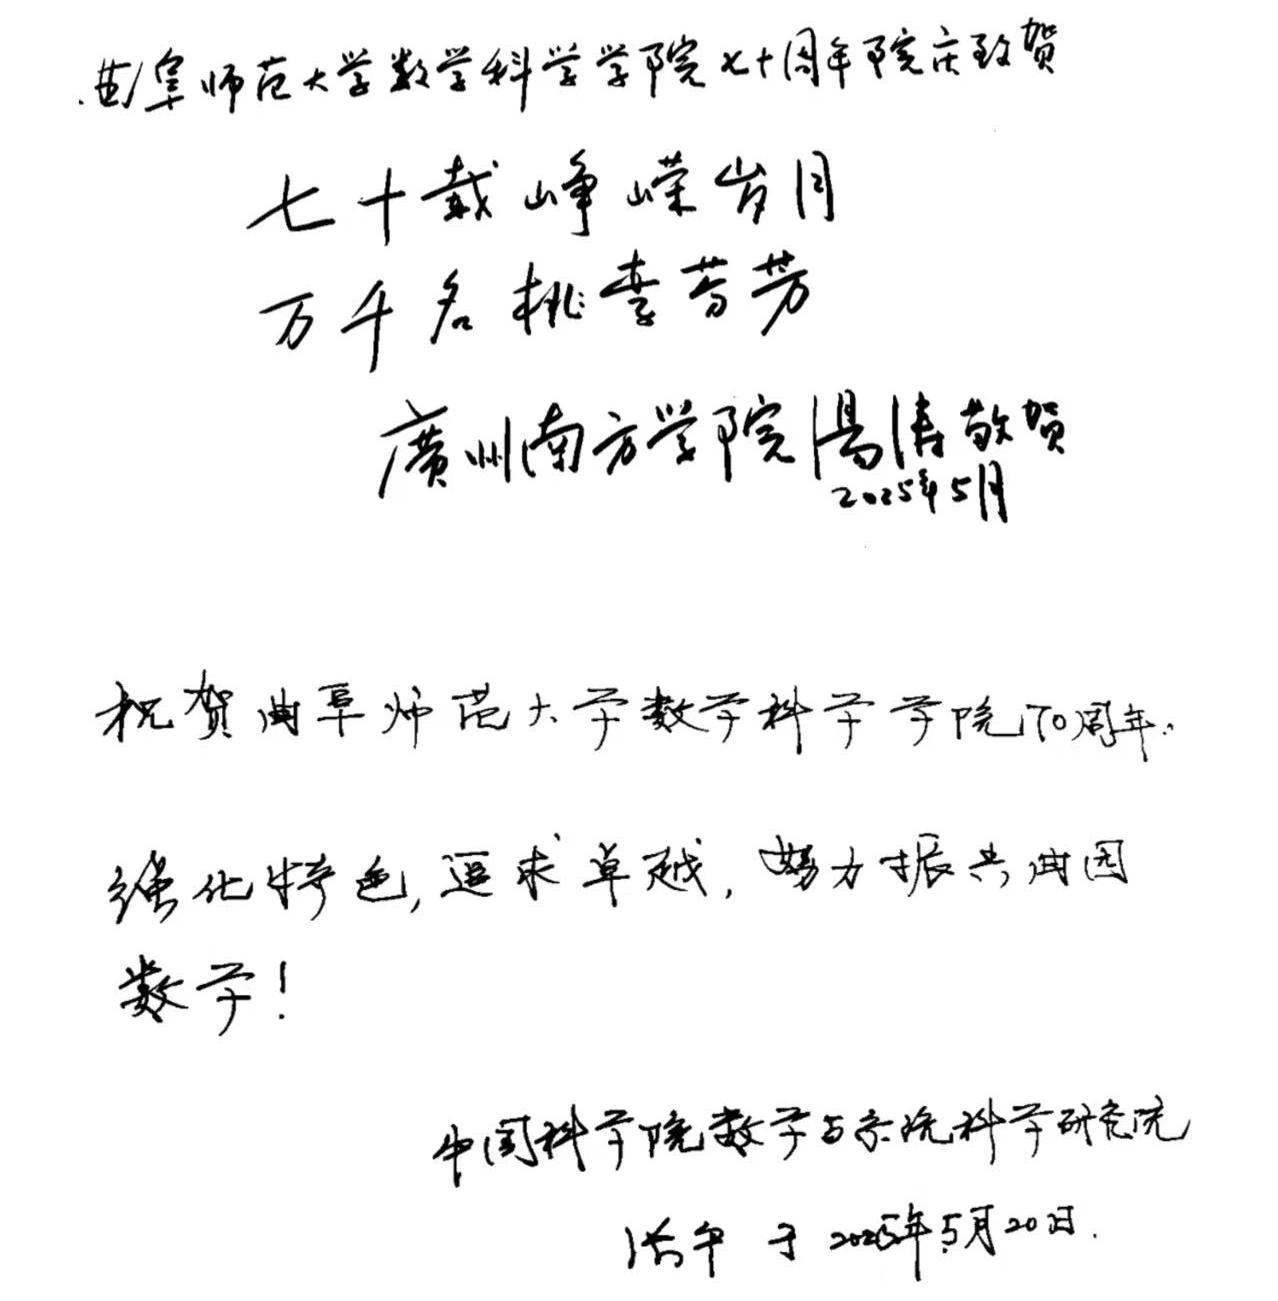 曲阜师范大学数学科学学院七十周年院庆致贺
七十载峥嵘岁月
万千名桃李芬芳
廣州南方学院 汤涛敬贺
2025年5月
祝贺曲阜师范大学数学科学学院70周年.
强化特色,追求卓越,努力振兴曲园
数学!
中国科学院数学与系统科学研究院
于2025年5月20日.